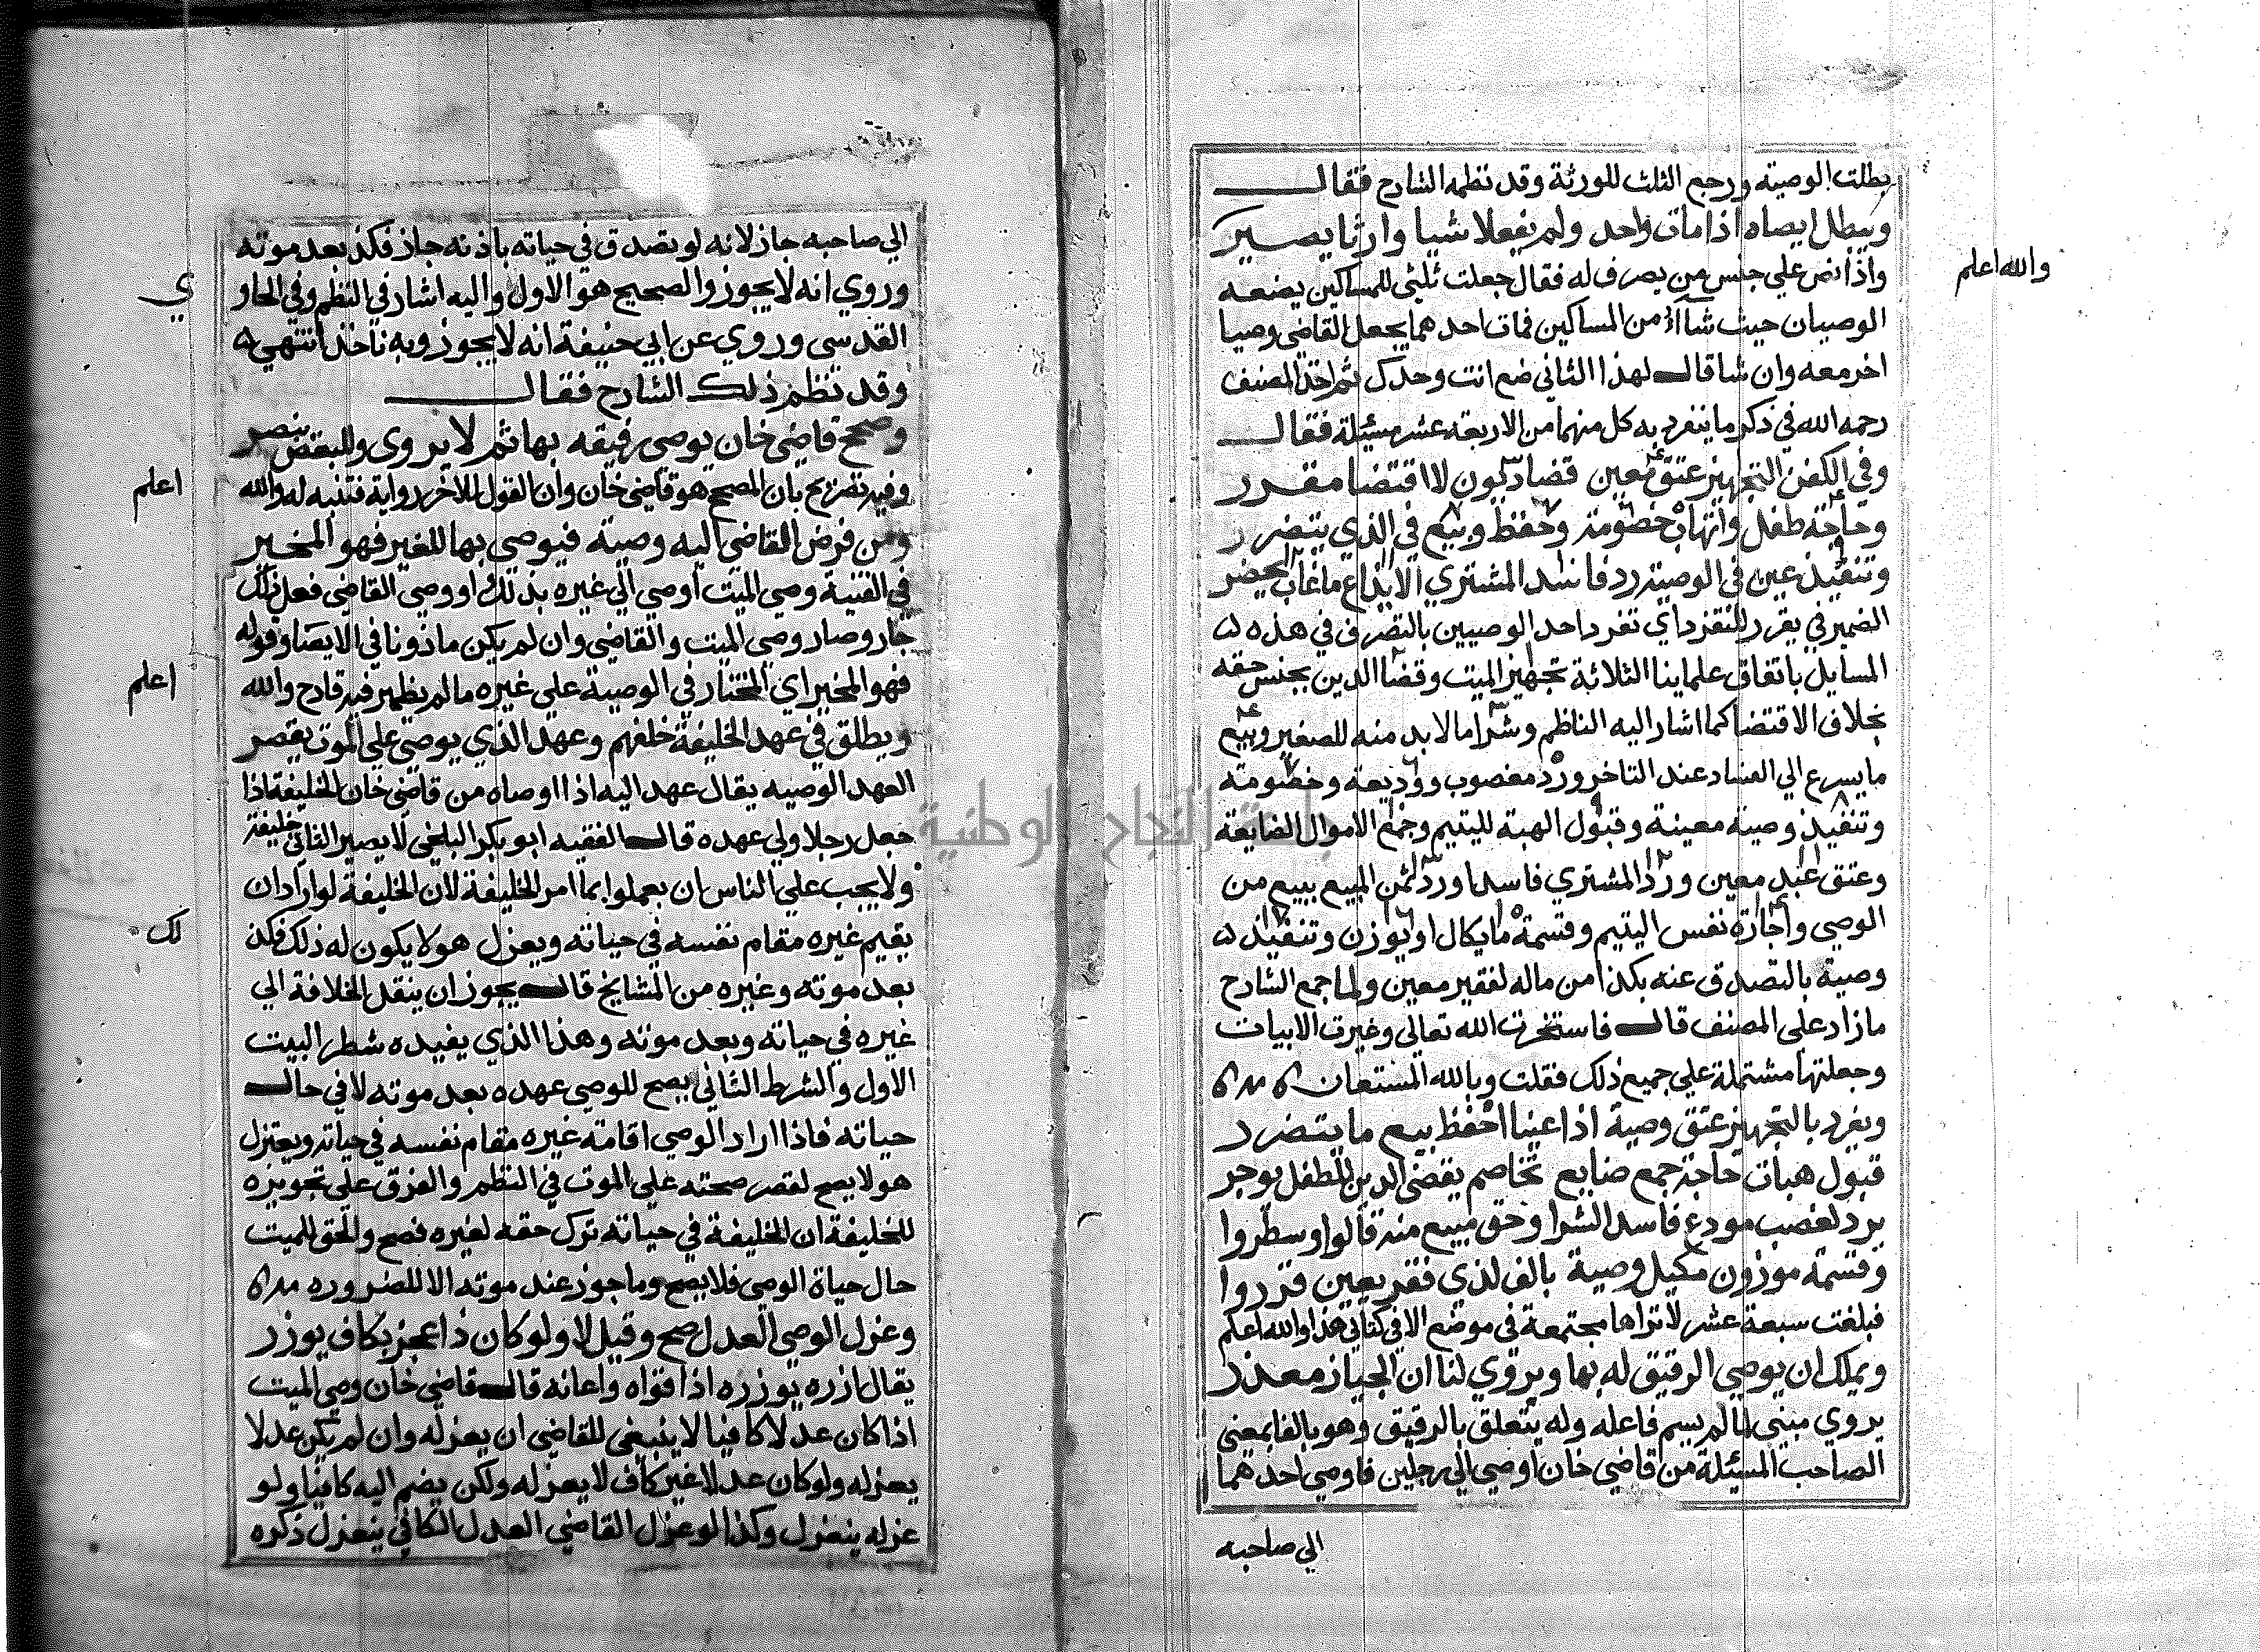 بطلت الوصية ورجع الثلث للورثة وقد نظمه الشارح فقال
ويبطل ايصاه اذا مات واحد ولم يفعلا شيا وارثا يصير
والله اعلم
واذا نص علي جنس من يصرف له فقال جعلت ثلثي للمساكين يضعه
الوصيان حيث شاآ من المساكين فمات احدهما يجعل القاضي وصيا
اخر معه وان شا قال لهذا الثاني ضع انت وحدك ثم اخذ المصنف
رحمه الله في ذكر ما ينفرد به كل منهما من الاربعة عشر مسئلة فقال
وفي الكفن التجهيز عتق معين قضا ديون لا اقتضا مقرر
وحاجة طفل واتهاب خصومة وحفظ وبيع في الذي يتضرر
وتنفيذ عين في الوصية رد فاسد المشتري الايداع ما غاب يحضر
الضمير في يقرر للتفرد اي تفرد احد الوصيين بالتصرف في هذه
المسايل باتفاق علماينا الثلاثة تجهيز الميت وقضا الدين بجنس حقه
بخلاف الاقتضا كما اشار اليه الناظم وشرا ما لا بد منه للصغير وبيع
ما يسرع الي الفساد عند التاخر ورد مغصوب ووديعة وخصومة
وتنفيذ وصية معينة وقبول الهبة لليتيم وجمع الاموال الضايعة
وعتق عبد معين ورد المشتري فاسدا ورد ثمن المبيع ببيع من
الوصي واجازة نفس اليتيم وقسمة ما يكال او يوزن وتنفيذ
وصية بالتصدق عنه بكذا من ماله لفقير معين ولما جمع الشارح
ما زاد علي المصنف قال فاستخرت الله تعالي وغيرت الابيات
وجعلتها مشتملة علي جميع ذلك فقلت وبالله المستعان
ويفرد بالتجهيز عتق وصية اذا عينا احفظ بيع ما يتضرر
قبول هبات حاجة جمع ضايع تخاصم يقضي الدين للطفل يوجر
يرد لغصب مودع فاسد الشرا وحق مبيع منه قالوا وسطروا
وقسمة موزون مكيل وصية بالف لذي فقر بعين قرروا
فبلغت سبعة عشر لا تراها مجتمعة في موضع الا في كتابي هذا والله اعلم
ويملك ان يوصي الرفيق له بها ويروي لنا ان الجياز معذر
يروي مبني لما لم يسم فاعله وله يتعلق بالرفيق وهو بالفا بمعني
الصاحب المسئلة من قاضي خان اوصي الي رجلين فاوصي احدهما
الي صاحبه
الي صاحبه جاز لانه لو تصدق في حياته باذنه جاز فكذ بعد موته
وروي انه لا يجوز والصحيح هو الاول واليه اشار في النظم وفي الحاو
ي
القدسي وروي عن ابي حنيفة انه لا يجوز وبه ناخذ انتهي
وقد نظم ذلك الشارح فقال
وصحح قاضي خان يوصي رفيقه بها ثم لا يروي وللبعض ينصر
وفيه تصريح بان المصحح هو قاضي خان وان القول الاخر رواية فتنبه له والله
اعلم
ومن فرض القاضي اليه وصية فيوصي بها للغير فهو المخير
في القنية وصي الميت اوصي الي غيره بذلك او وصي القاضي فعل ذلك
جاز وصار وصي الميت والقاضي وان لم يكن ماذونا في الايصا وقوله
فهو المخير اي المختار في الوصية علي غيره ما لم يظهر فيه قادح والله
اعلم
ويطلق في عهد الخليفة خلفهم وعهد الذي يوصي علي الموت يقصر
العهد الوصيه يقال عهد اليه اذا اوصاه من قاضي خان الخليفة اذا
جعل رجلا ولي عهده قال الفقيه ابو بكر البلخي لا يصير الثاني خليفة
ولا يجب علي الناس ان يعملوا بما امر الخليفة لان الخليفة لو اراد ان
يقيم غيره مقام نفسه في حياته ويعزل هو لا يكون له ذلك فكذ
لك
بعد موته وغيره من المشايخ قال يجوز ان ينقل الخلافة الي
غيره في حياته وبعد موته وهذا الذي يفيده شطر البيت
الاول والشرط الثاني يصح للوصي عهده بعد موته لا في حال
حياته فاذا اراد الوصي اقامة غيره مقام نفسه في حياته ويعتزل
هو لا يصح لقصر صحته علي الموت في النظم والفرق علي تجويزه
للخليفة ان الخليفة في حياته ترك حقه لغيره فصح والحق للميت
حال حياة الوصي فلا يصح وما جوز عند موته الا للضروره
وعزل الوصي العدل صح وقيل لا ولو كان ذا عجز بكاف يوزر
يقال ازره يوزره اذا قواه واعانه قال قاضي خان وصي الميت
اذا كان عدلا كافيا لا ينبغي للقاضي ان يعزله وان لم يكن عدلا
يعزله ولو كان عدلا غير كاف لا يعزله ولكن يضم اليه كافيا ولو
عزله ينعزل وكذا لو عزل القاضي العدل الكافي ينعزل ذكره
جامعة النجاح الوطنية